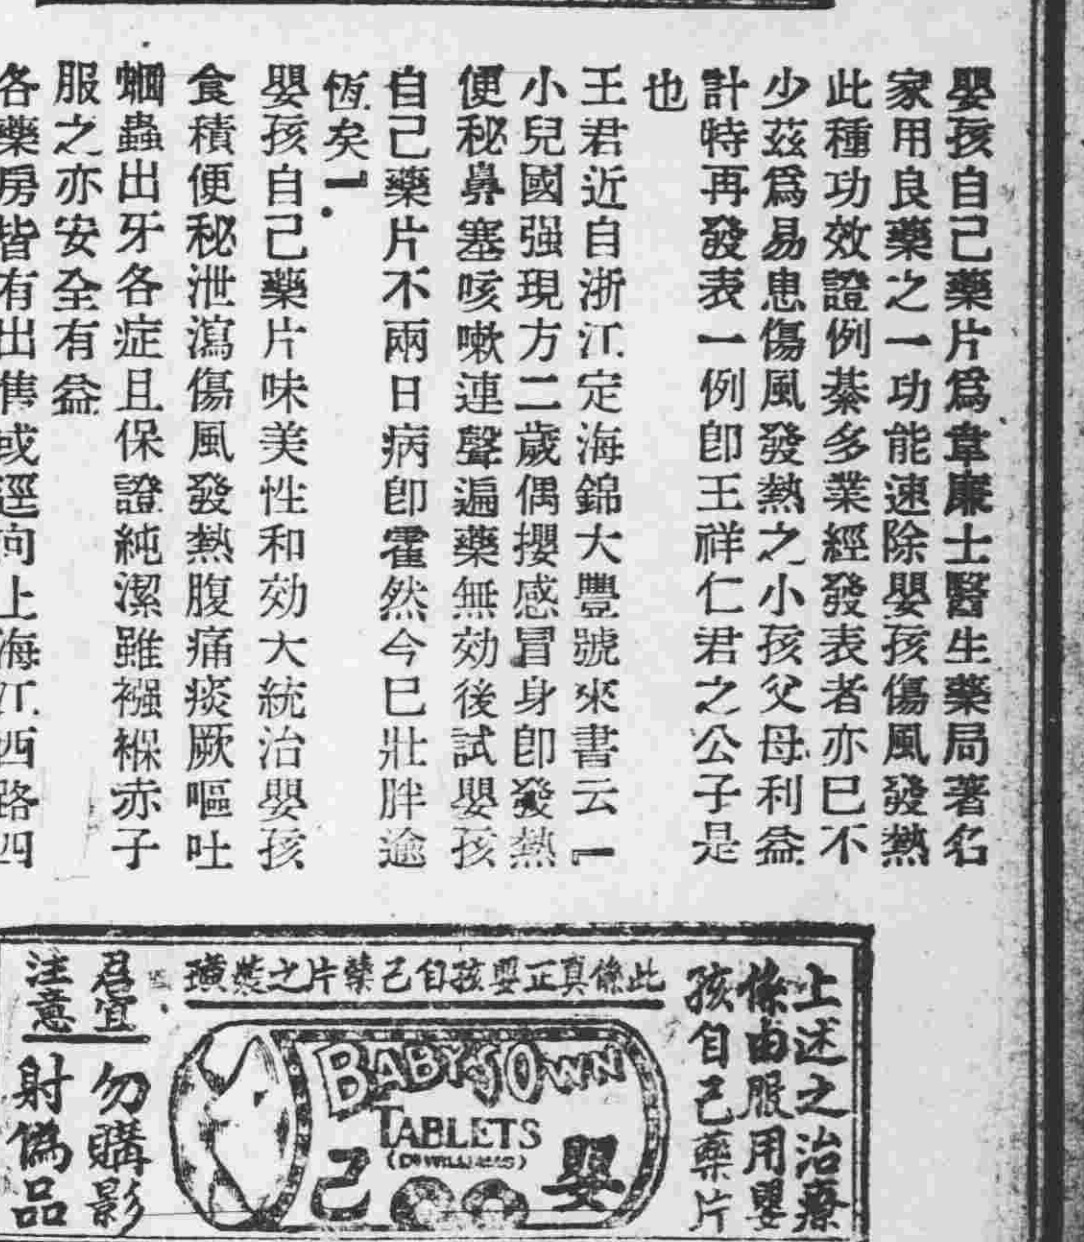 嬰孩自己藥片爲韋廉士醫生藥局著名
家用良藥之一功能速除嬰孩傷風發熱
此種功效證例綦多業經發表者亦巳不
少茲爲易患傷風發熱之小孩父母利益
計特再發表一例卽王祥仁君之公子是
也
王君近自浙江定海錦大豐號來書云「
小兒國强現方二歲偶攖感冒身卽發熱
便秘鼻塞咳嗽連聲遍藥無効後試嬰孩
自己藥片不兩日病卽霍然今巳壯胖逾
恆矣」.
嬰孩自己藥片味美性和効大統治嬰孩
食積便秘泄瀉傷風發熱腹痛痰厥嘔吐
蛔蟲出牙各症且保證純潔雖襁褓赤子
服之亦安全有益
各藥房皆有出售或逕向上海江西路四
上述之治療
係由服用嬰
孩自己藥片
此係真正嬰孩自己藥片之裝璜
BABY'S OWN
TABLETS
(DR WILLIAMS)
嬰
己
君宜
注意
勿購影
射僞品